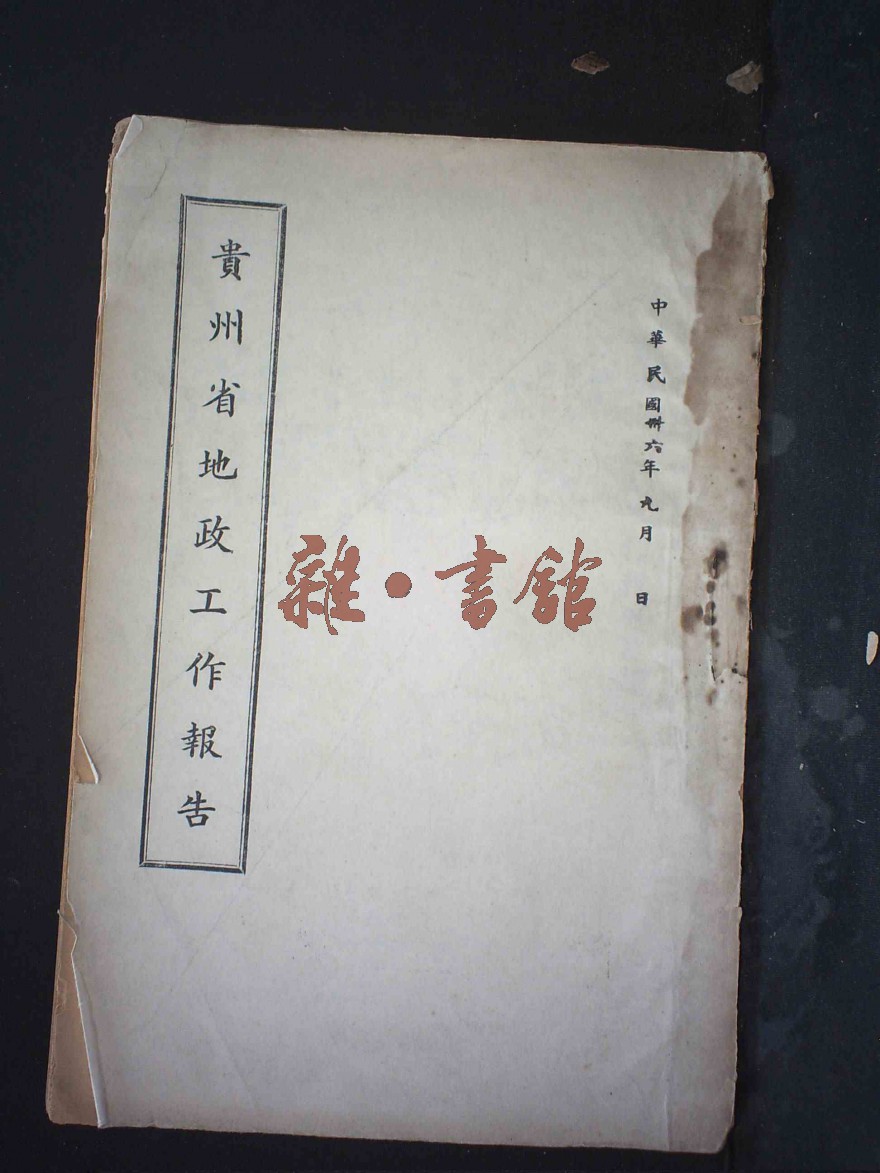 中華民國卅六年九月 日
雜·書館
貴州省地政工作報告